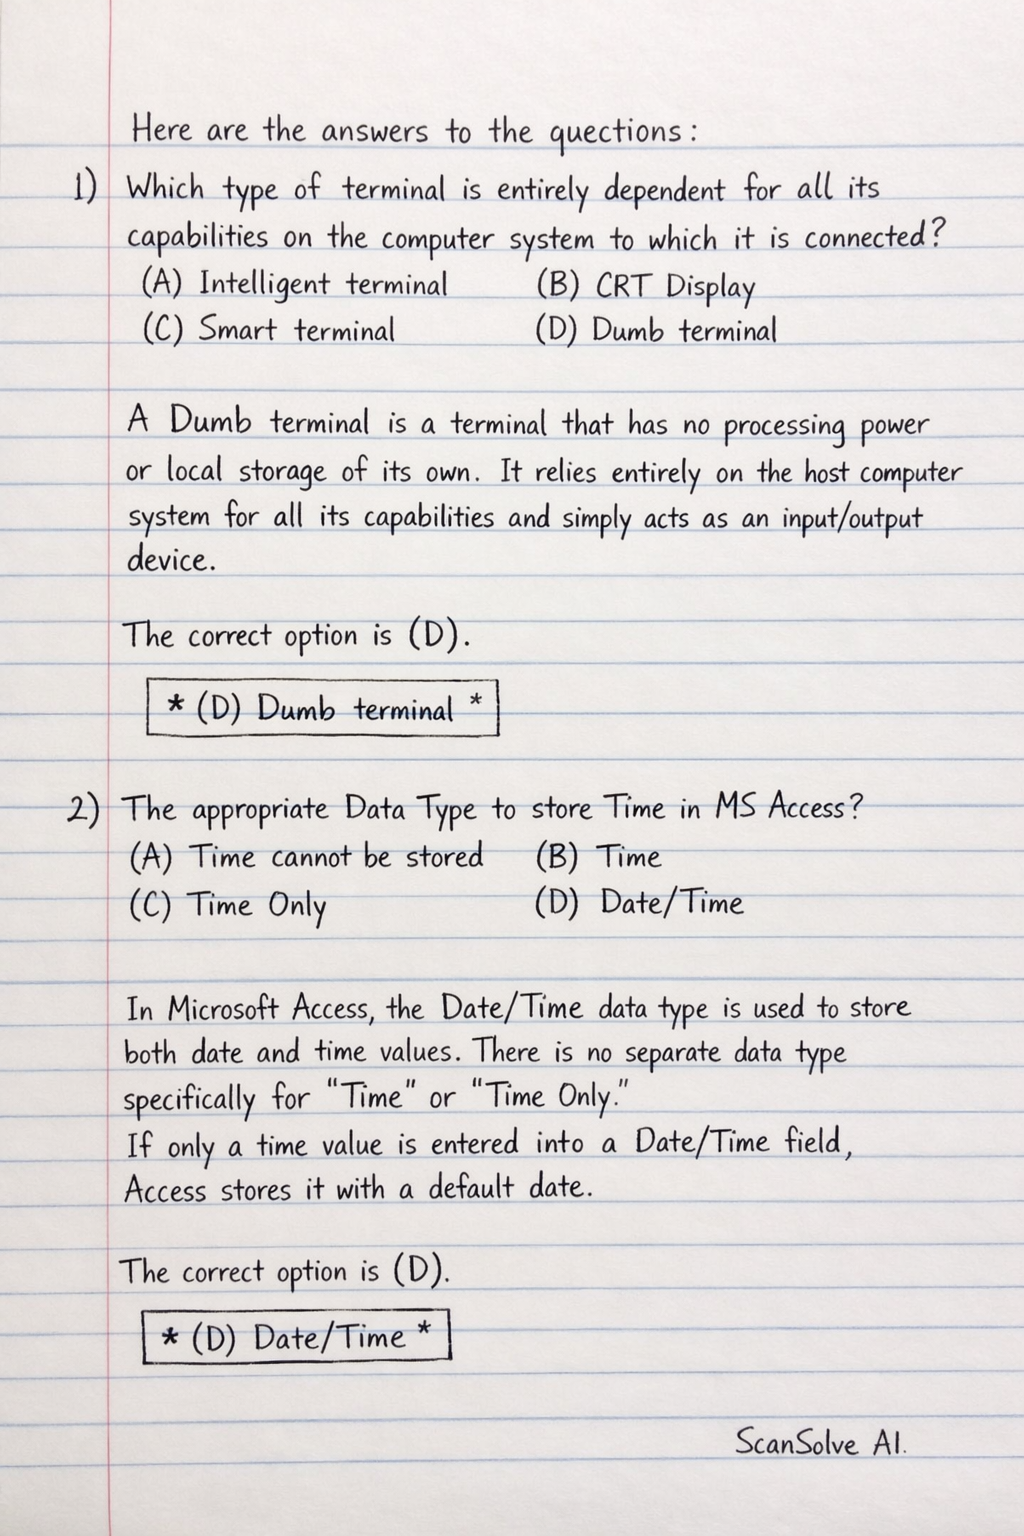 Here are the answers to the quections:
1) Which type of terminal is entirely dependent for all its
capabilities on the computer system to which it is connected?
(A) Intelligent terminal (B) CRT Display
(C) Smart terminal (D) Dumb terminal
A Dumb terminal is a terminal that has no processing power
or local storage of its own. It relies entirely on the host computer
system for all its capabilities and simply acts as an input/output
device.
The correct option is (D).
* (D) Dumb terminal *
2) The appropriate Data Type to store Time in MS Access?
(A) Time cannot be stored (B) Time
(C) Time Only (D) Date/Time
In Microsoft Access, the Date/Time data type is used to store
both date and time values. There is no separate data type
specifically for "Time" or "Time Only."
If only a time value is entered into a Date/Time field,
Access stores it with a default date.
The correct option is (D).
* (D) Date/Time *
ScanSolve AI.